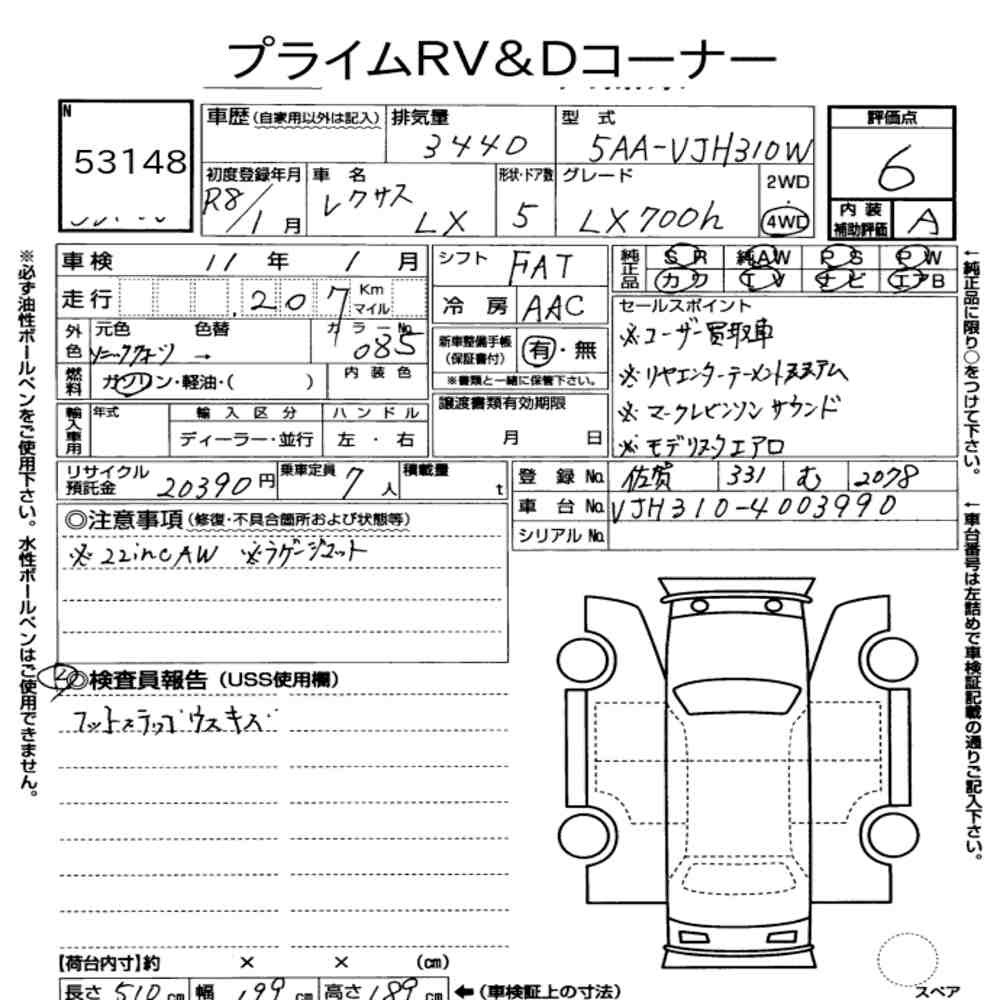 プライムRV&Dコーナー
N
53148
車歴(自家用以外は記入)
排気量
3440
型 式
5AA-VJH310W
評価点
6
初度登録年月
R8/1月
車 名
レクサス LX
形状・ドア数
5
グレード
LX700h
2WD
・
4WD
内 装
補助評価
A
車検 11年 1月
シフト FAT
純正品 SR 純AW PS PW
カワ TV ナビ エアB
走行 207 Km マイル
冷 房 AAC
セールスポイント
※ユーザー買取車
※リヤエンターテーメントススアム
※マークレビンソン サウンド
※モデリスタエアロ
外色 元色 色替 カラーNo.
ソニッククォーツ → 085
新車整備手帳
(保証書付)
有・無
※書類と一緒に保管下さい。
燃料 ガソリン・軽油・( )
内 装 色
譲渡書類有効期限
月 日
輸入車用 年式 輸 入 区 分 ハ ン ド ル
ディーラー・並行 左 ・ 右
リサイクル
預託金 20390円
乗車定員 7人
積載量 t
登 録 No. 佐賀 331 む 2078
車 台 No. VJH310-4003990
シリアル No.
◎注意事項(修復・不具合箇所および状態等)
※22incAW ※ラゲージマット
◎検査員報告(USS使用欄)
フットステップ ウスキズ
【荷台内寸】約 × × (cm)
長さ 510 cm 幅 199 cm 高さ 189 cm ←(車検証上の寸法)
スペア
※必ず油性ボールペンをご使用下さい。水性ボールペンはご使用できません。
←純正品に限り○をつけて下さい。
←車台番号は左詰めで車検証記載の通りご記入下さい。